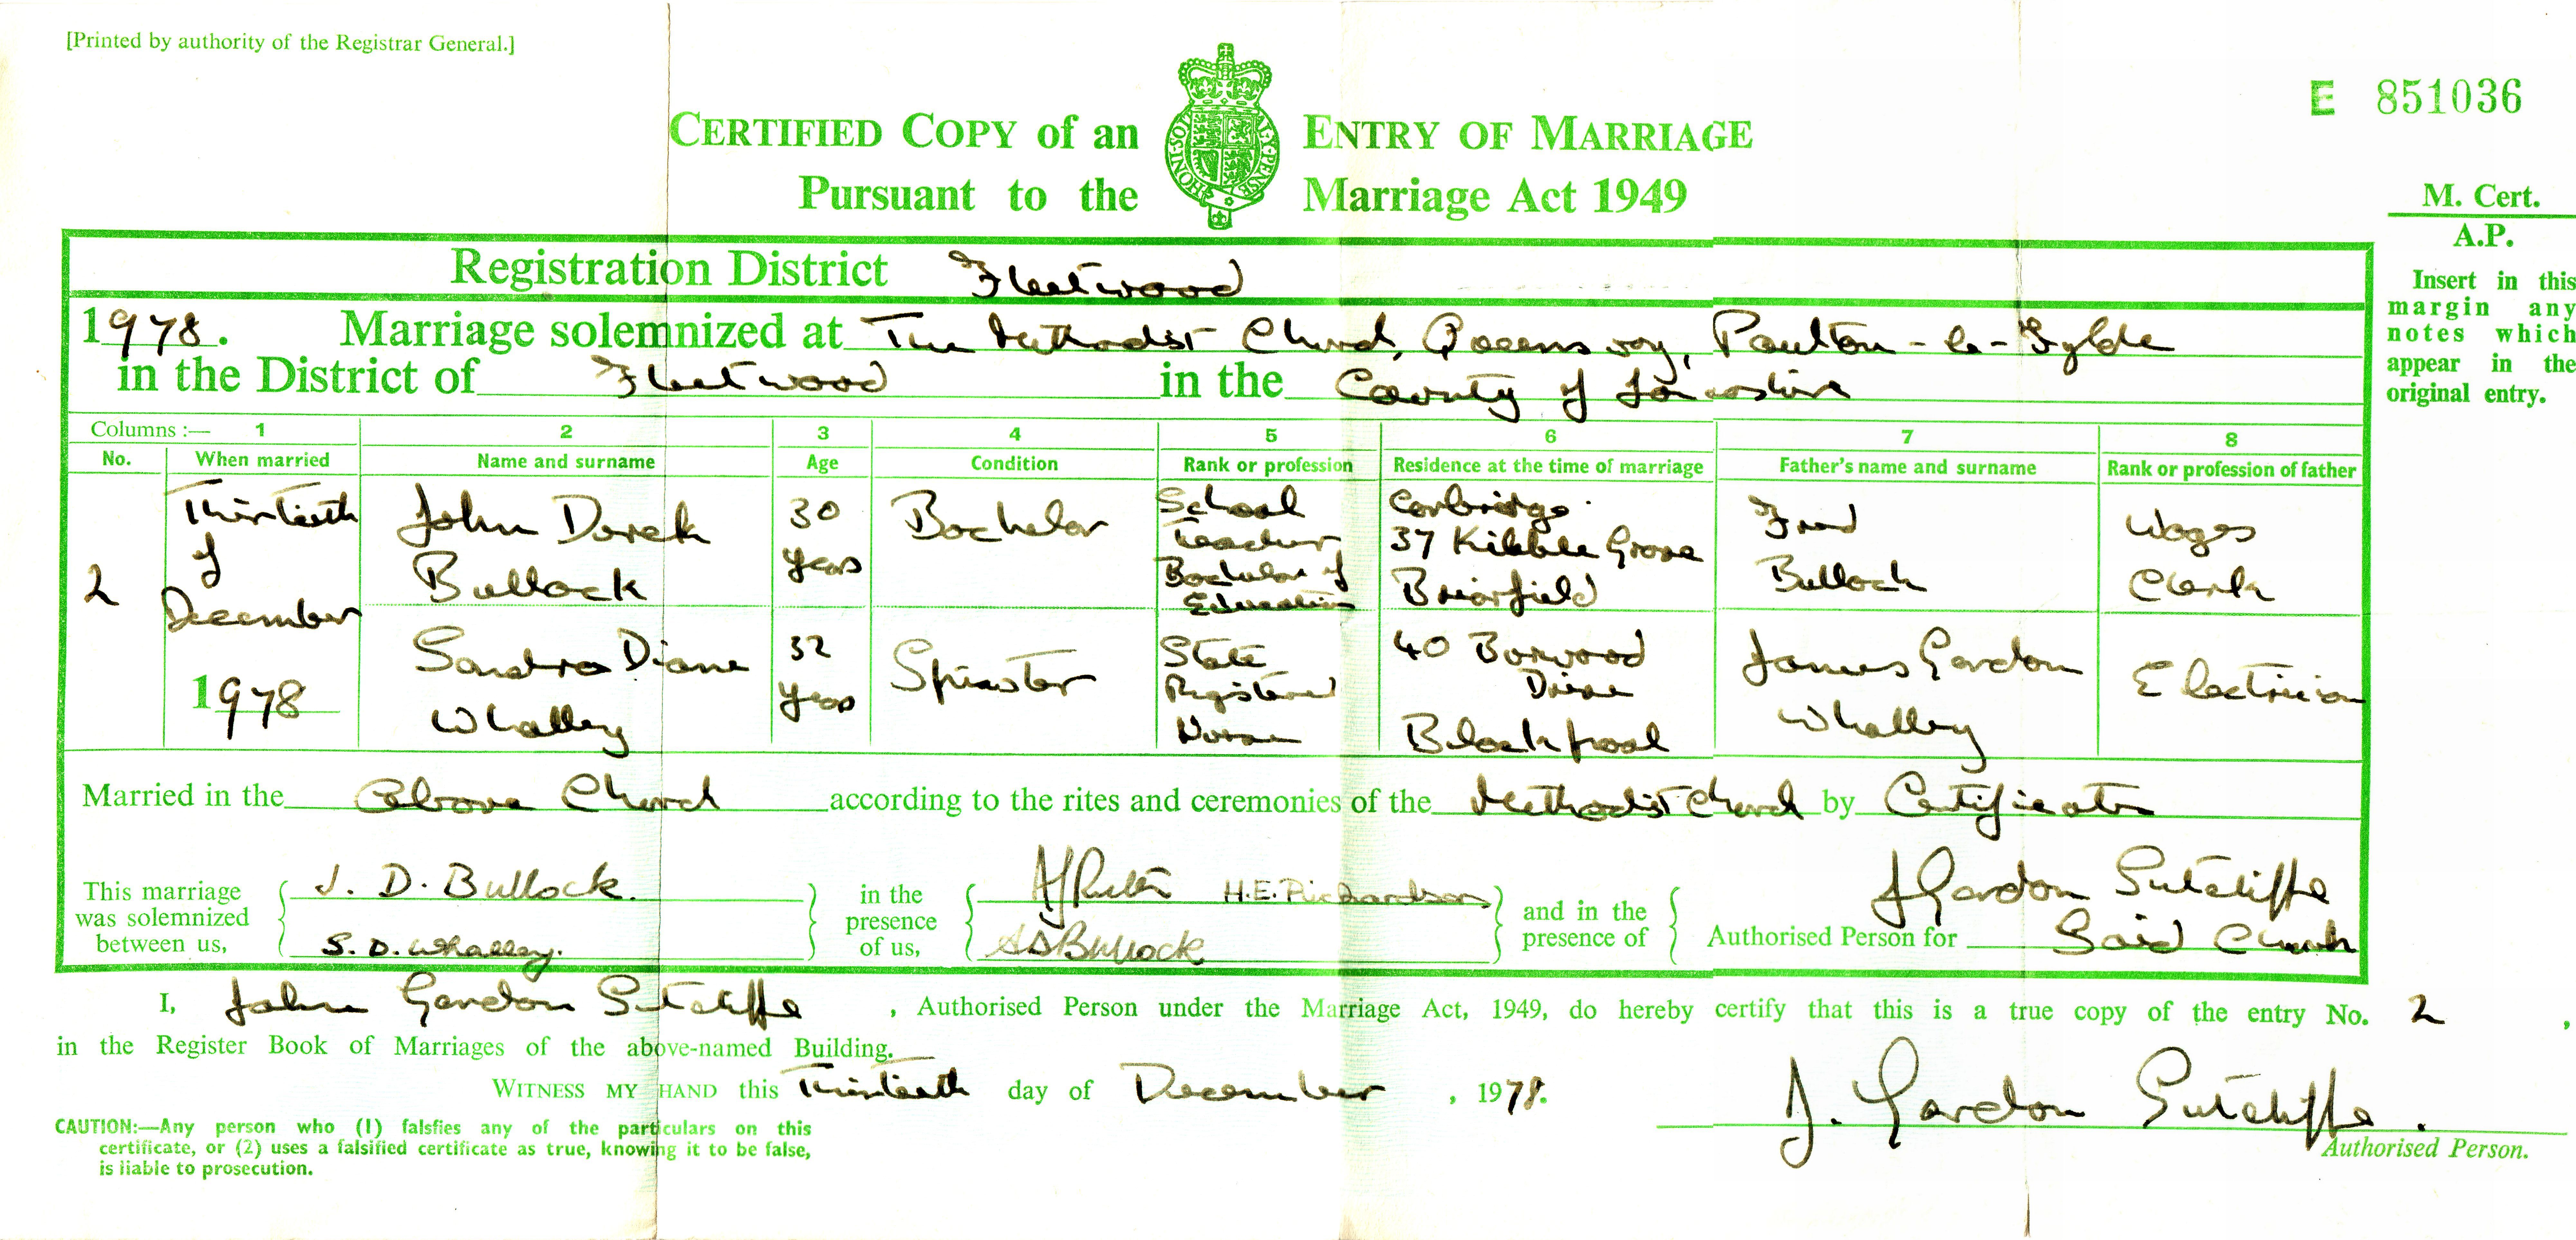 [Printed by authority of the Registrar General.]
E 851036
CERTIFIED COPY of an ENTRY OF MARRIAGE
Pursuant to the Marriage Act 1949
HONI·SOIT QUI MAL·Y·PENSE
M. Cert.
A.P.
Insert in this
margin any
notes which
appear in the
original entry.
Registration District Fleetwood
1978. Marriage solemnized at The Methodist Church, Queensway, Poulton-le-Fylde
in the District of Fleetwood in the County of Lancashire
Columns :— 1 2 3 4 5 6 7 8
No. When married Name and surname Age Condition Rank or profession Residence at the time of marriage Father's name and surname Rank or profession of father
2 Thirtieth of December 1978
John Derek Bullock 30 years Bachelor School Teacher Bachelor of Education Corbridge 37 Kibble Grove Brierfield Fred Bullock Wages Clerk
Sandra Diane Whalley 32 years Spinster State Registered Nurse 40 Boxwood Drive Blackpool James Gordon Whalley Electrician
Married in the above Church according to the rites and ceremonies of the Methodist Church by Certificate
This marriage was solemnized between us, J. D. Bullock. S. D. Whalley.
in the presence of us, H.E. Richardson Bullock
and in the presence of J Gordon Sutcliffe
Authorised Person for Said Church
I, John Gordon Sutcliffe, Authorised Person under the Marriage Act, 1949, do hereby certify that this is a true copy of the entry No. 2,
in the Register Book of Marriages of the above-named Building.
WITNESS MY HAND this Thirtieth day of December, 1978.
J. Gordon Sutcliffe.
Authorised Person.
CAUTION:—Any person who (1) falsfies any of the particulars on this
certificate, or (2) uses a falsified certificate as true, knowing it to be false,
is liable to prosecution.